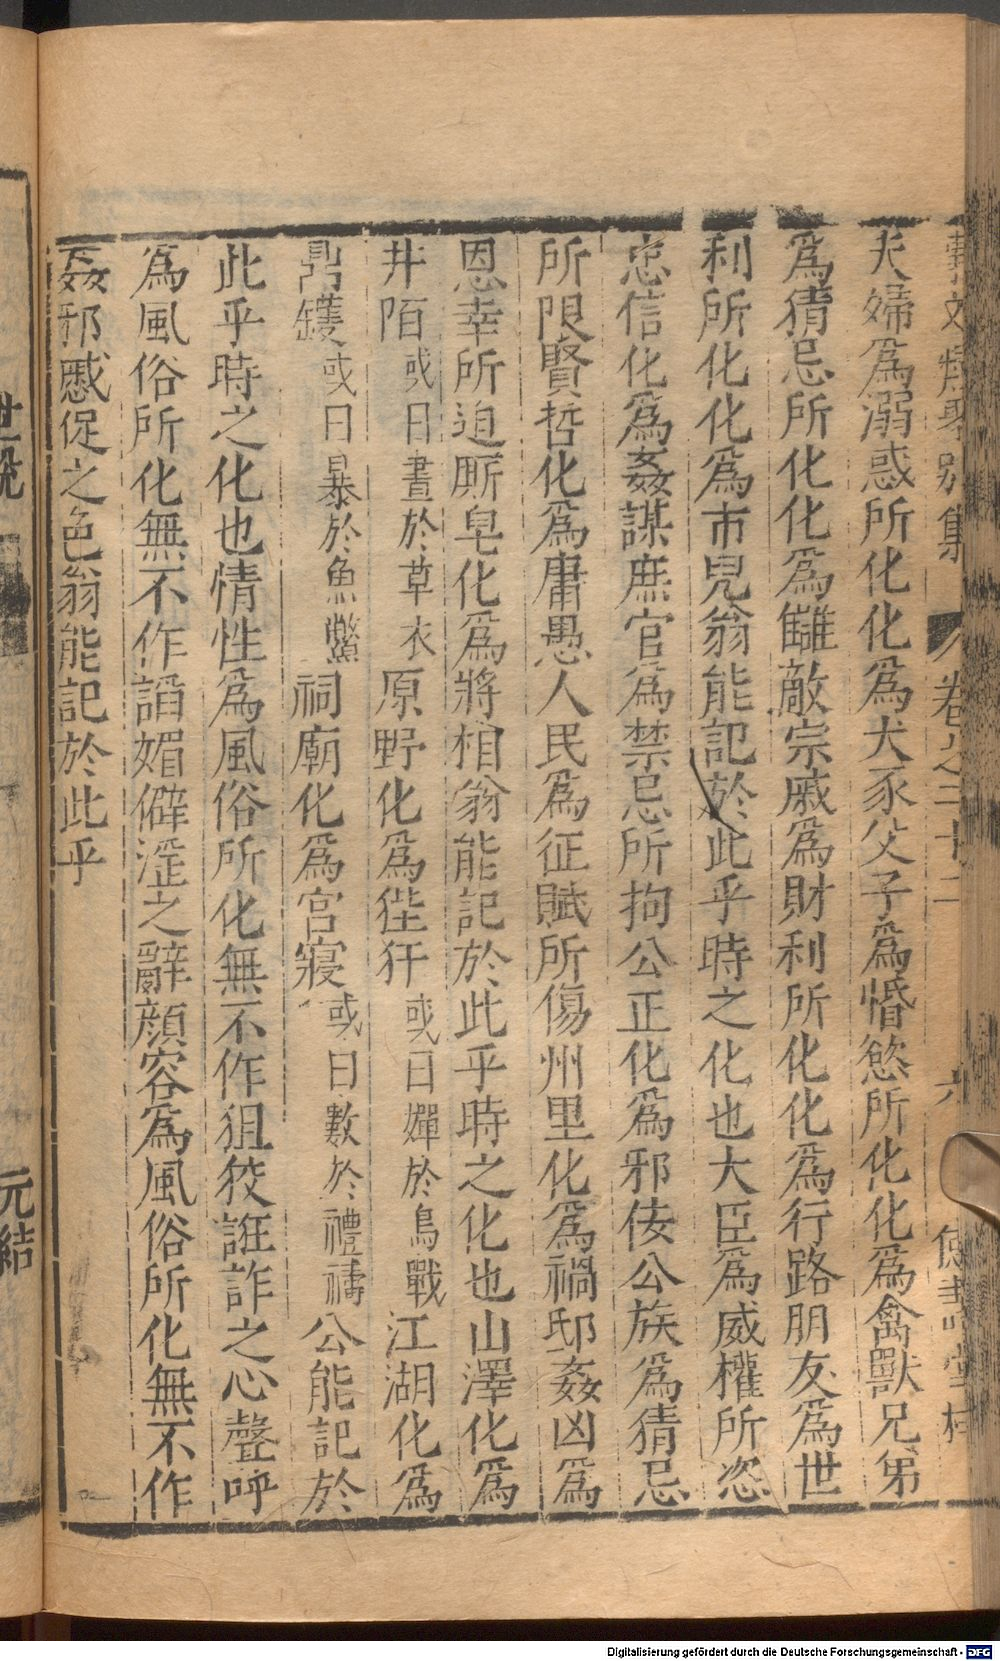 彙文類聚別集 卷之三十二 六
夫婦爲溺惑所化化爲犬豕父子爲惛慾所化化爲禽獸兄弟
爲猜忌所化化爲讎敵宗戚爲財利所化化爲行路朋友爲世
利所化化爲市兒翁能記於此乎時之化也大臣爲威權所恣
忠信化爲姦謀庶官爲禁忌所拘公正化爲邪佞公族爲猜忌
所限賢哲化爲庸愚人民爲征賦所傷州里化爲禍邸姦凶爲
恩幸所迫厮皂化爲將相翁能記於此乎時之化也山澤化爲
井陌或曰晝於草衣原野化爲狴犴或曰嬋於鳥戰江湖化爲
鼎鑊或曰暴於魚鱉祠廟化爲宮寢或曰數於禮禱公能記於
此乎時之化也情性爲風俗所化無不作狙狡誑詐之心聲呼
爲風俗所化無不作諂媚僻淫之辭顏容爲風俗所化無不作
姦邪蹙促之色翁能記於此乎
世說
元結
Digitalisierung gefördert durch die Deutsche Forschungsgemeinschaft - DFG